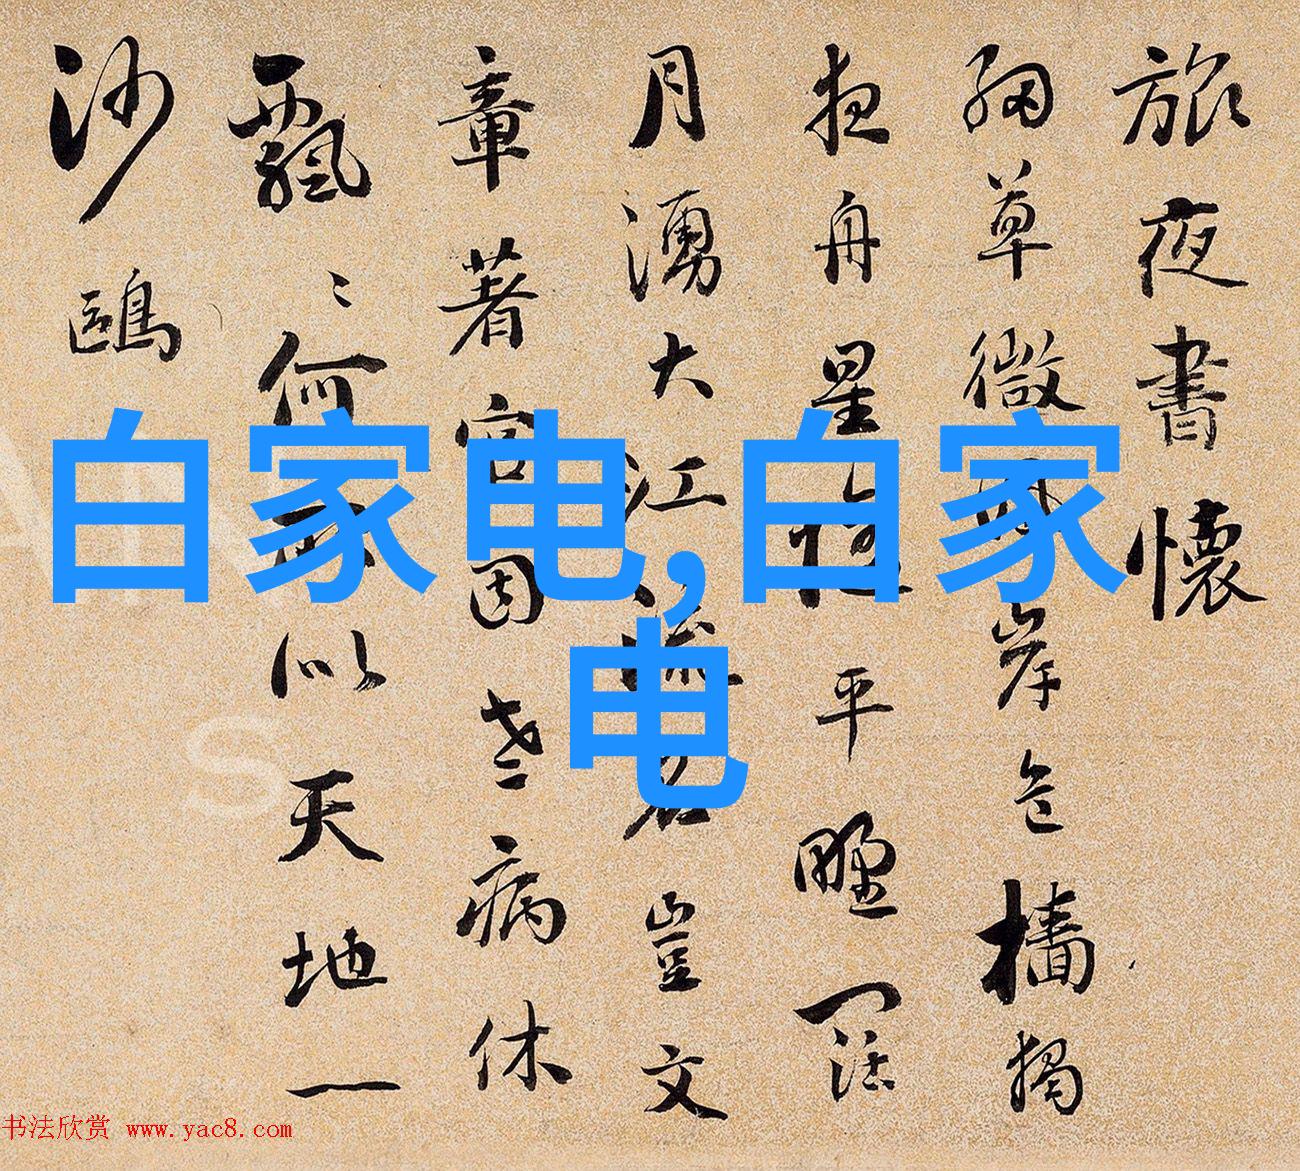 旅夜書懷
細草微風岸危檣獨
夜舟星垂平野闊
月湧大江流名豈文
章著官因老病休
飄〻何所似天地一
沙鷗
白家电,白家
电
书法欣赏 www.yac8.com